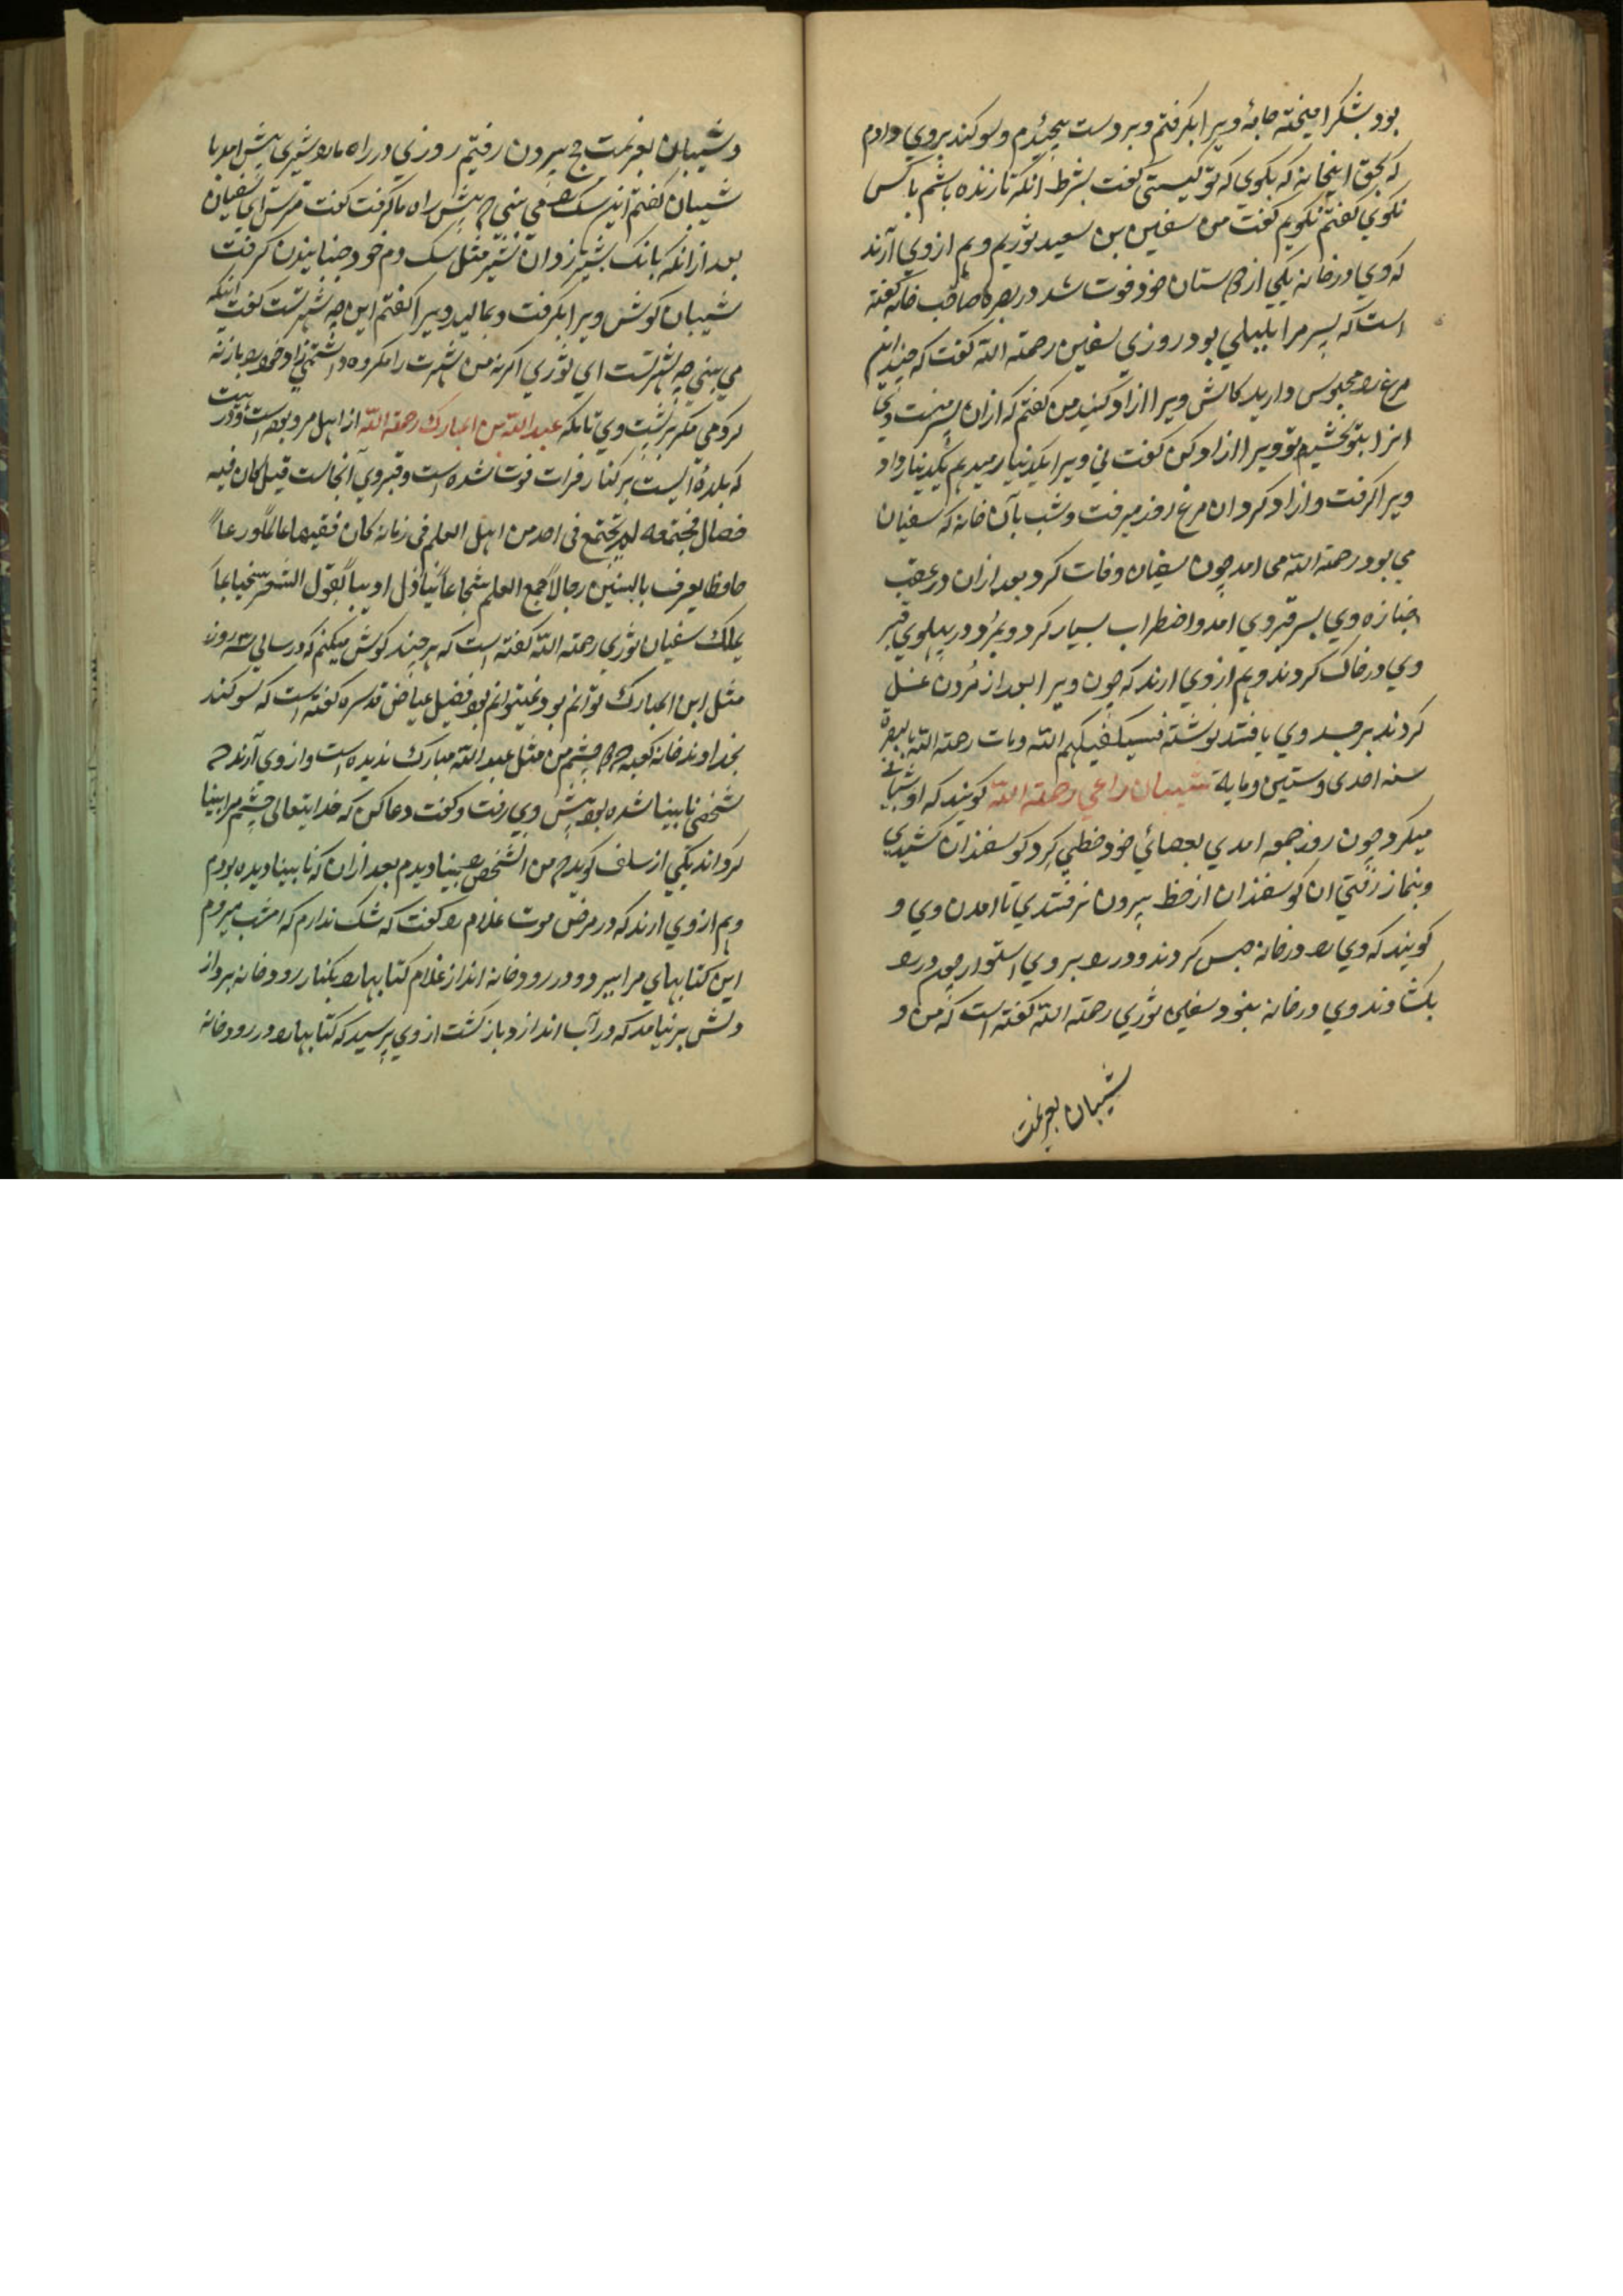 بود بشکر امیخته جامهٔ ویرا بکرفتم و بر دست پیچیدم و سوکند بروي دادم
که بحق اینخانه که بکوي که تو کیستی کفت بشرط انکه تا زنده باشم با کس
نکوي کفتم نکویم کفت من سفین بن سعید ثوریم و هم ازوي آرند
که وي در خانه یکي از دوستان خود فوت شد در بصره صاحب خانه کفته
است که پسر مرا بلبلي بود روزي سفین رحمة الله کفت که چند این
مرغ را محبوس دارید کاش ویرا ازاد کنید من کفتم که ازان پسر منست وي
انرا بتو بخشیم تو ویرا ازاد کن کفت ني ویرا یکدینار میدهم یکدینار داد
ویرا کرفت و ازاد کرد ان مرغ روز میرفت و شب بآن خانه که سفیان
مي بود رحمة الله می امد چون سفیان وفات کرد بعد ازان در عقب
جنازه وي بسر قبر وي امد و اضطراب بسیار کرد و بمرد در پهلوي قبر
وي در خاک کردند و هم ازوي ارند که چون ویرا بعد از مردن غسل
کردند بر جسد وي یافتند نوشته فسیکفیکهم الله و مات رحمة الله بالبصرة
سنه احدی و ستین و مایة شیبان راعي رحمة الله کویند که او شبانی
میکرد چون روز جمعه امدي بعصائي خود خطي کرد کوسفندان کشیدي
و بنماز رفتي ان کوسفندان از خط بیرون نرفتندي تا امدن وي و
کویند که وي را در خانه حبس کردند و در را بروي استوار چون در را
بکشادند وي در خانه نبود سفین ثوري رحمة الله کفته است که من و
شیبان بعزیمت
و شیبان بعزیمت حج بیرون رفتیم روزي در راه ما را شیری پیش امد با
شیبان کفتم این سک را می بینی که پیش راه ما کرفت کفت مترس اي سفیان
بعد ازانکه بانک بشیر زد ان شیر مثل سک دم خود جنبانیدن کرفت
شیبان کوش ویرا بکرفت و بمالید ویرا کفتم این چه شهرتست کفت اینکه
مي بیني چه شهرتست اي ثوري اکر نه من شهرت را مکروه داشتمي زاد خود را بار نه
کردمی مکر بر پشت وي تا بمکه عبد الله بن المبارك رحمة الله از اهل مرو بوده است و در هیت
که بلدهٔ ایست بر کنار فرات فوت شده است و قبر وي آنجاست قیل کان فیه
خصال مجتمعه لم تجتمع فی احد من اهل العلم فی زمانه کان فقیها عالماً ورعاً
حافظا یعرف بالسنین رجالا جمع العلم شجاعاً ینازل ادیباً یقول الشعر سخیا بما
یملك سفیان ثوري رحمة الله کفته است که هر چند کوشش میکنم که در سالی سه روز
مثل ابن المبارك توانم بود نمیتوانم بود فضیل عیاض قدسره کفته است که سوکند
بخداوند خانه کعبه که دو چشم من مثل عبد الله مبارك ندیده است و از وی آرند که
شخصی نابینا شده بود پیش وي رفت و کفت دعا کن که خدایتعالی چشم مرا بینا
کرداند یکي از سلف کوید که من الشخص را بینا دیدم بعد ازان که نابینا دیده بودم
و هم از وي ارند که در مرض موت غلام را کفت که شک ندارم که امشب میروم
این کتابهاي مرا ببر و در رودخانه انداز غلام کتابها را بکنار رودخانه برد از
دلش بر نیامد که در آب اندازد باز کشت از وي پرسید که کتابها را در رودخانه